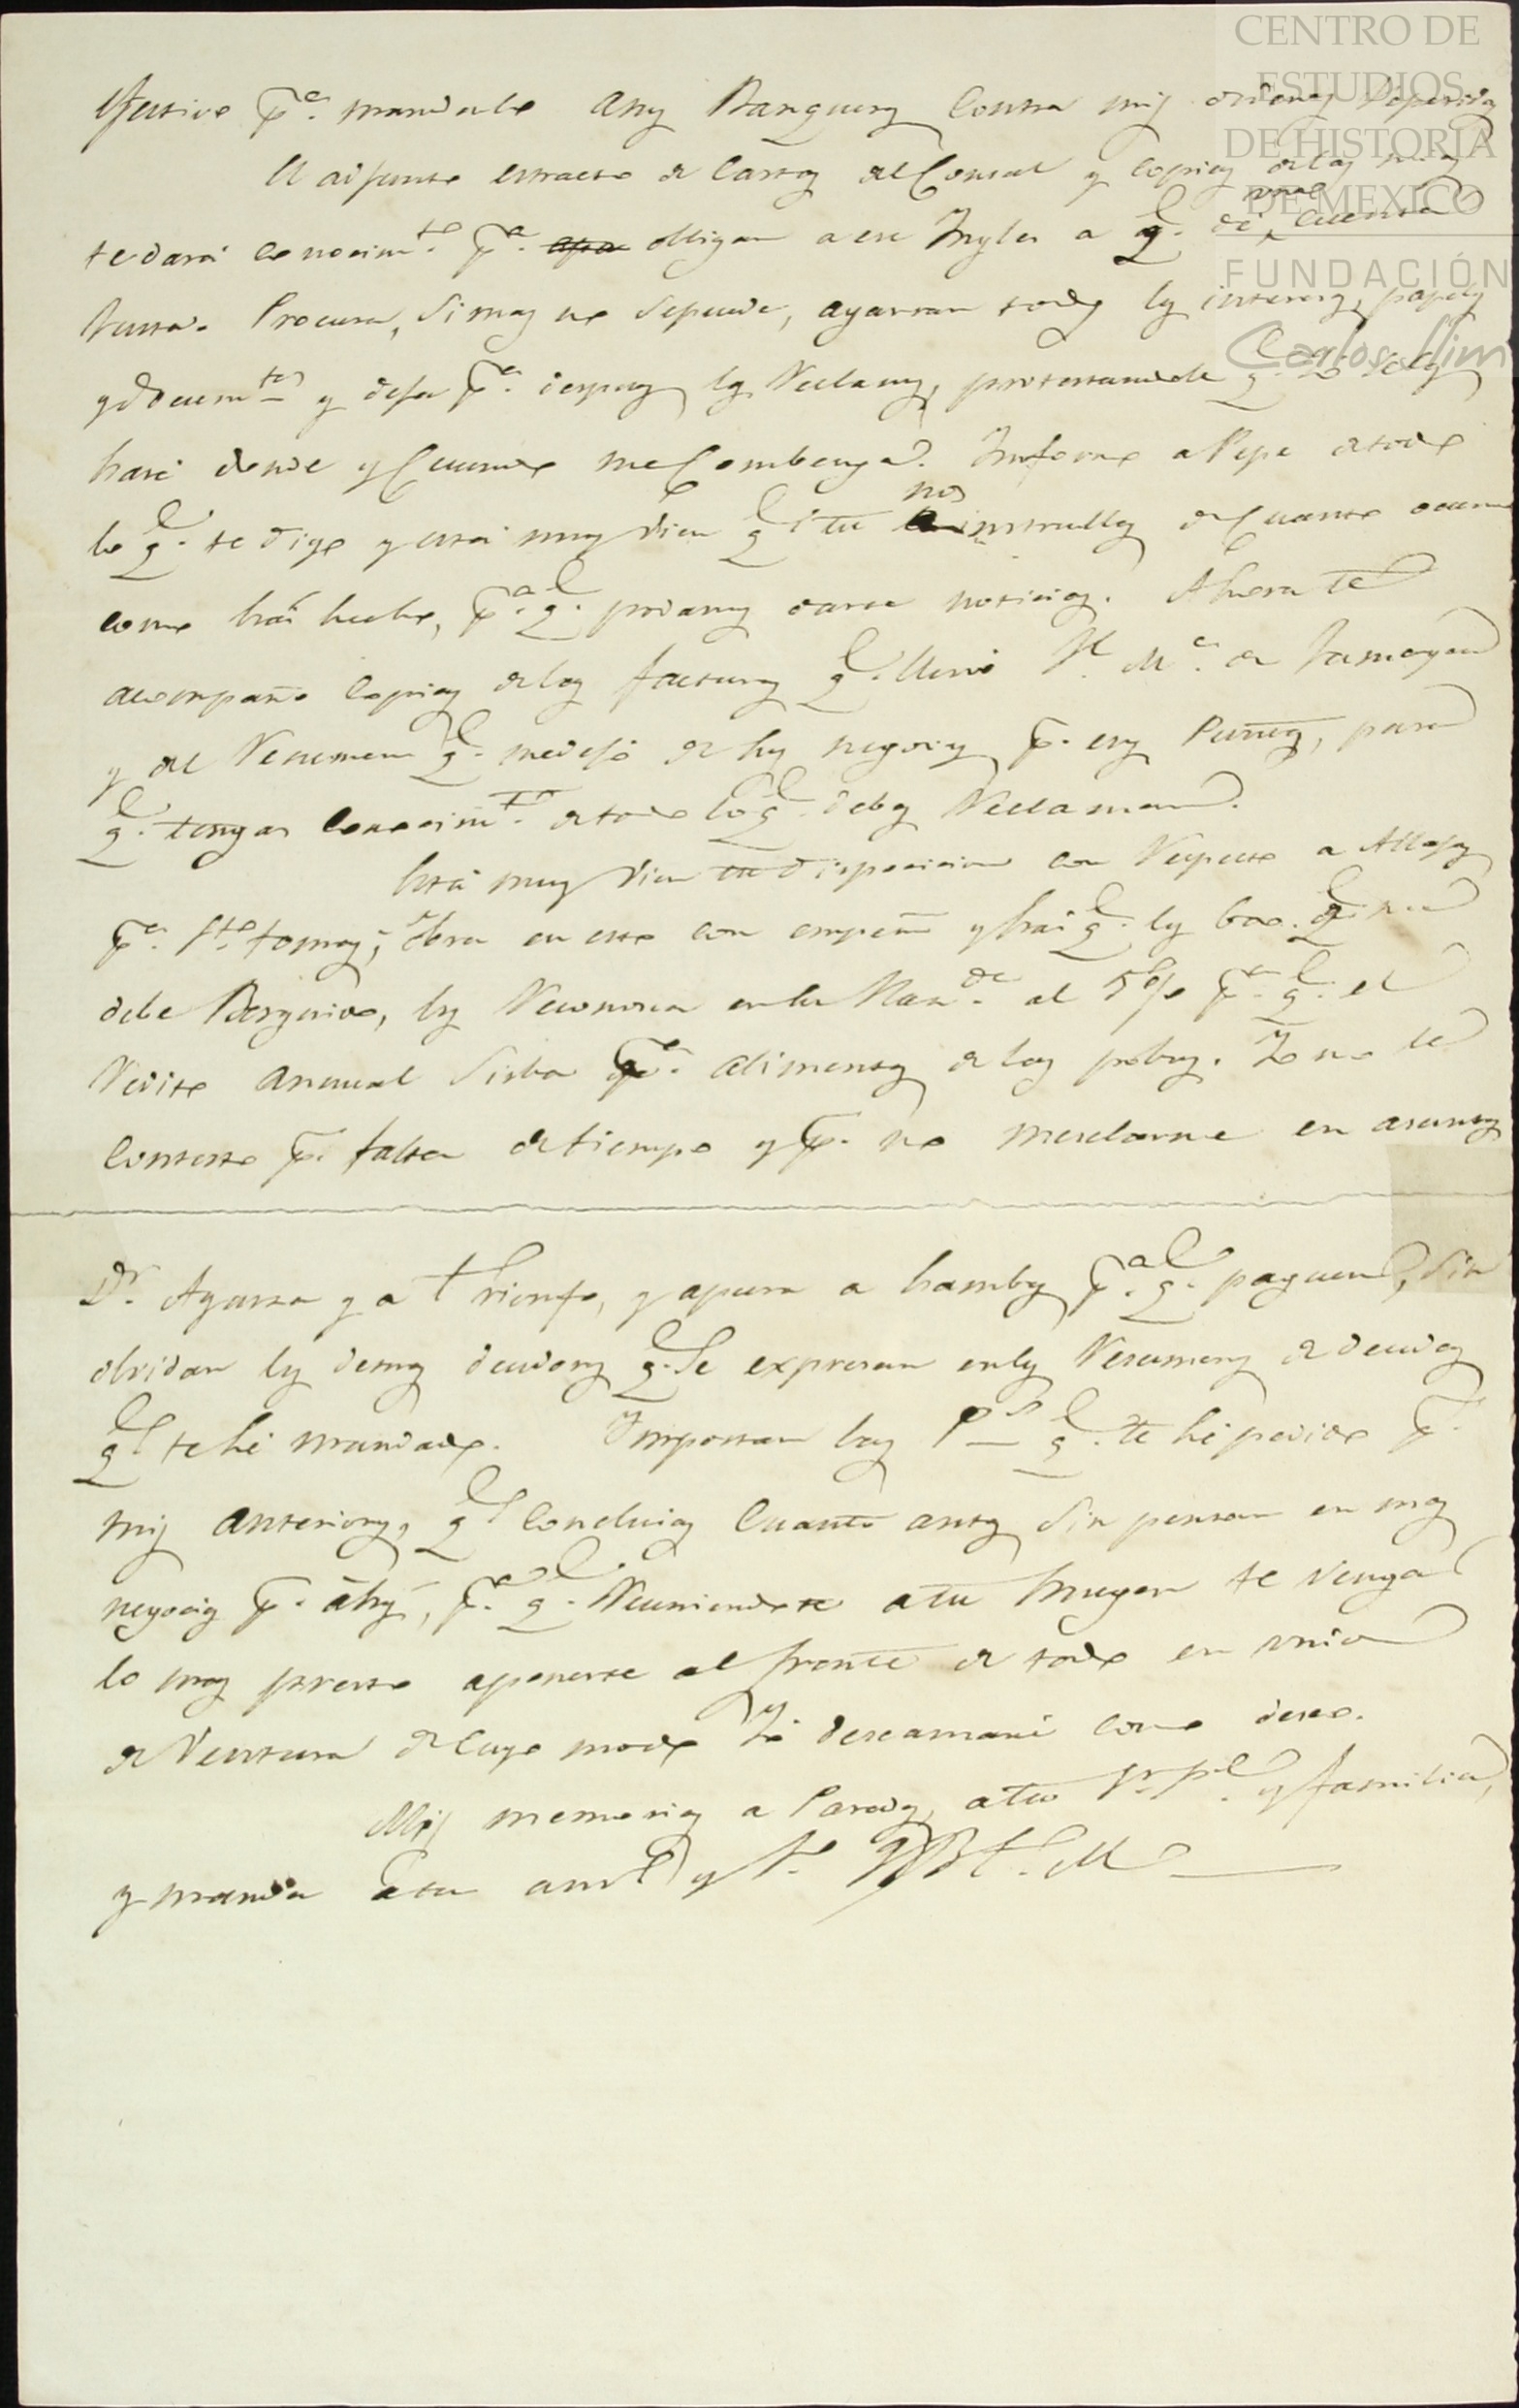 CENTRO DE
ESTUDIOS
DE HISTORIA
DE MEXICO
FUNDACIÓN
Carlos Slim
efectivo p.a mandarlo a sus Banqueros contra mis ordenes
El adjunto extracto de cartas del Consul y copias de las mias
te dará conocim.to p.a obligar a ese Ingles a q.e dé una cuenta
justa. Procura, si mas no se puede, agarrar todos los intereses, papeles
y docum.tos y deja p.a despues los Reclamos, protestandole q.e
haré donde y Cuando me Combenga. Informo a Pepe de todo
lo q.e te digo y está muy bien q.e tu nos instrullas de Cuanto ocurra
como hás hecho, p.a q.e podamos darte noticias. Ahora te
acompaño copias de las facturas q.e llevó de Jamayca
y del Resumen q.e me dejó de los negocios p.r esos Puntos, para
q.e tengas conocim.to de todo lo q.e debes Reclamar.
Está muy bien tu disposicion con Respecto a
p.a S.to tomas; obra en esto con empeño y hás q.e los
debe los Reconosca en la Haz.da al 5 % p.a q.e el
Redito annual sirba p.a alimentos de las pobres. Yo no le
Contesto p.r falta de tiempo y p.r no mesclarme en asuntos
D.n Agarra y a Triunfo, y apura a hambos p.a q.e paguen, sin
olvidar los demas deudores q.e se expresan en los Resumenes de deudas
q.e te hé mandado. Importan las q.e te hé pedido p.r
mis anteriores, q.e Concluias Cuanto antes sin pensar en mas
negocios p.r áhy, p.a q.e Reuniendote a tu Muger te vengas
lo mas presto a ponerte al frente de todo en union
de Ventura de Cuyo modo Yó descansaré como deseo.
Mis memorias a Paredes, a tu y familia,
y manda á tu am.o y